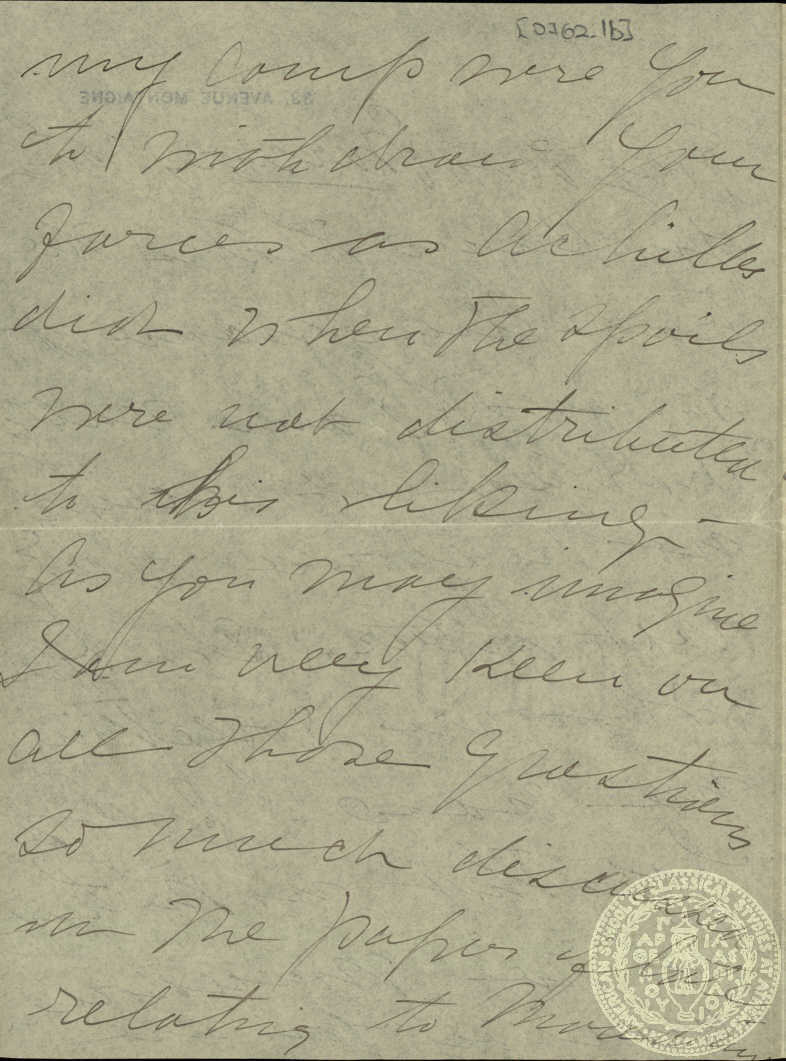 [0362-1b]
33, AVENUE MONTAIGNE
my camp were you
to withdraw your
forces as Achilles
did when the spoils
were not distributed
to his liking -
As you may imagine
I am very keen on
all those questions
so much discussed
in the papers
relating to
AMERICAN SCHOOL OF CLASSICAL STUDIES AT